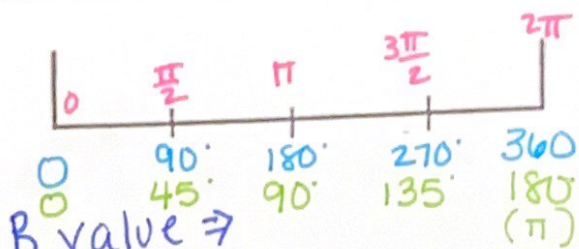 0 π/2 π 3π/2 2π
0 90° 180° 270° 360
0 45° 90° 135° 180°
B value ⇒ (π)